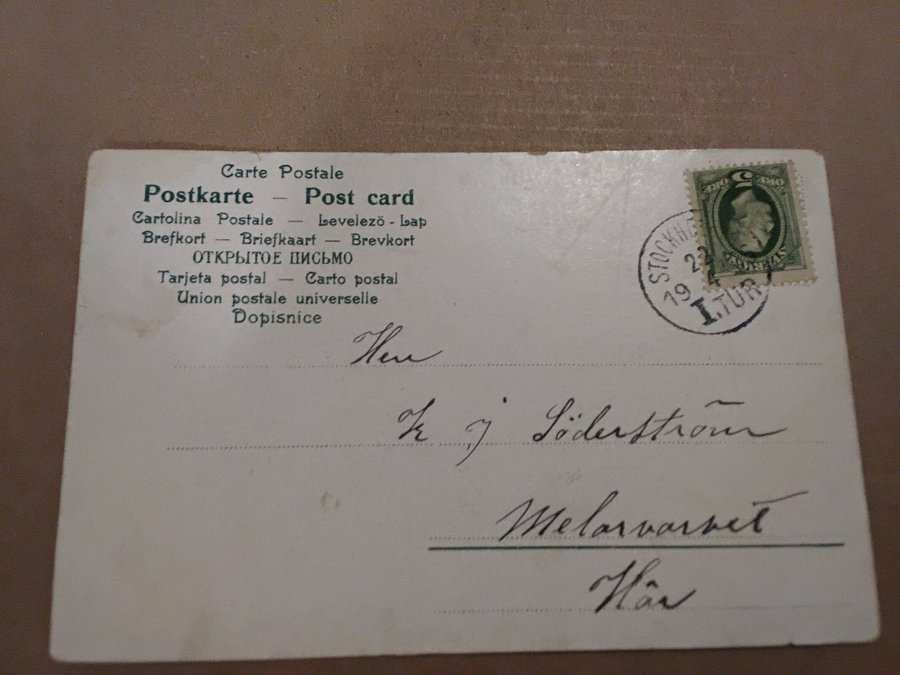 Carte Postale
Postkarte — Post card
Cartolina Postale — Levelezö-Lap
Brefkort — Briefkaart — Brevkort
ОТКРЫТОЕ ПИСЬМО
Tarjeta postal — Carto postal
Union postale universelle
Dopisnice
STOCKHO
22
4
19
1.TUR
5
SVERIGE
Herr
K J Söderström
Melarvarvet
Här